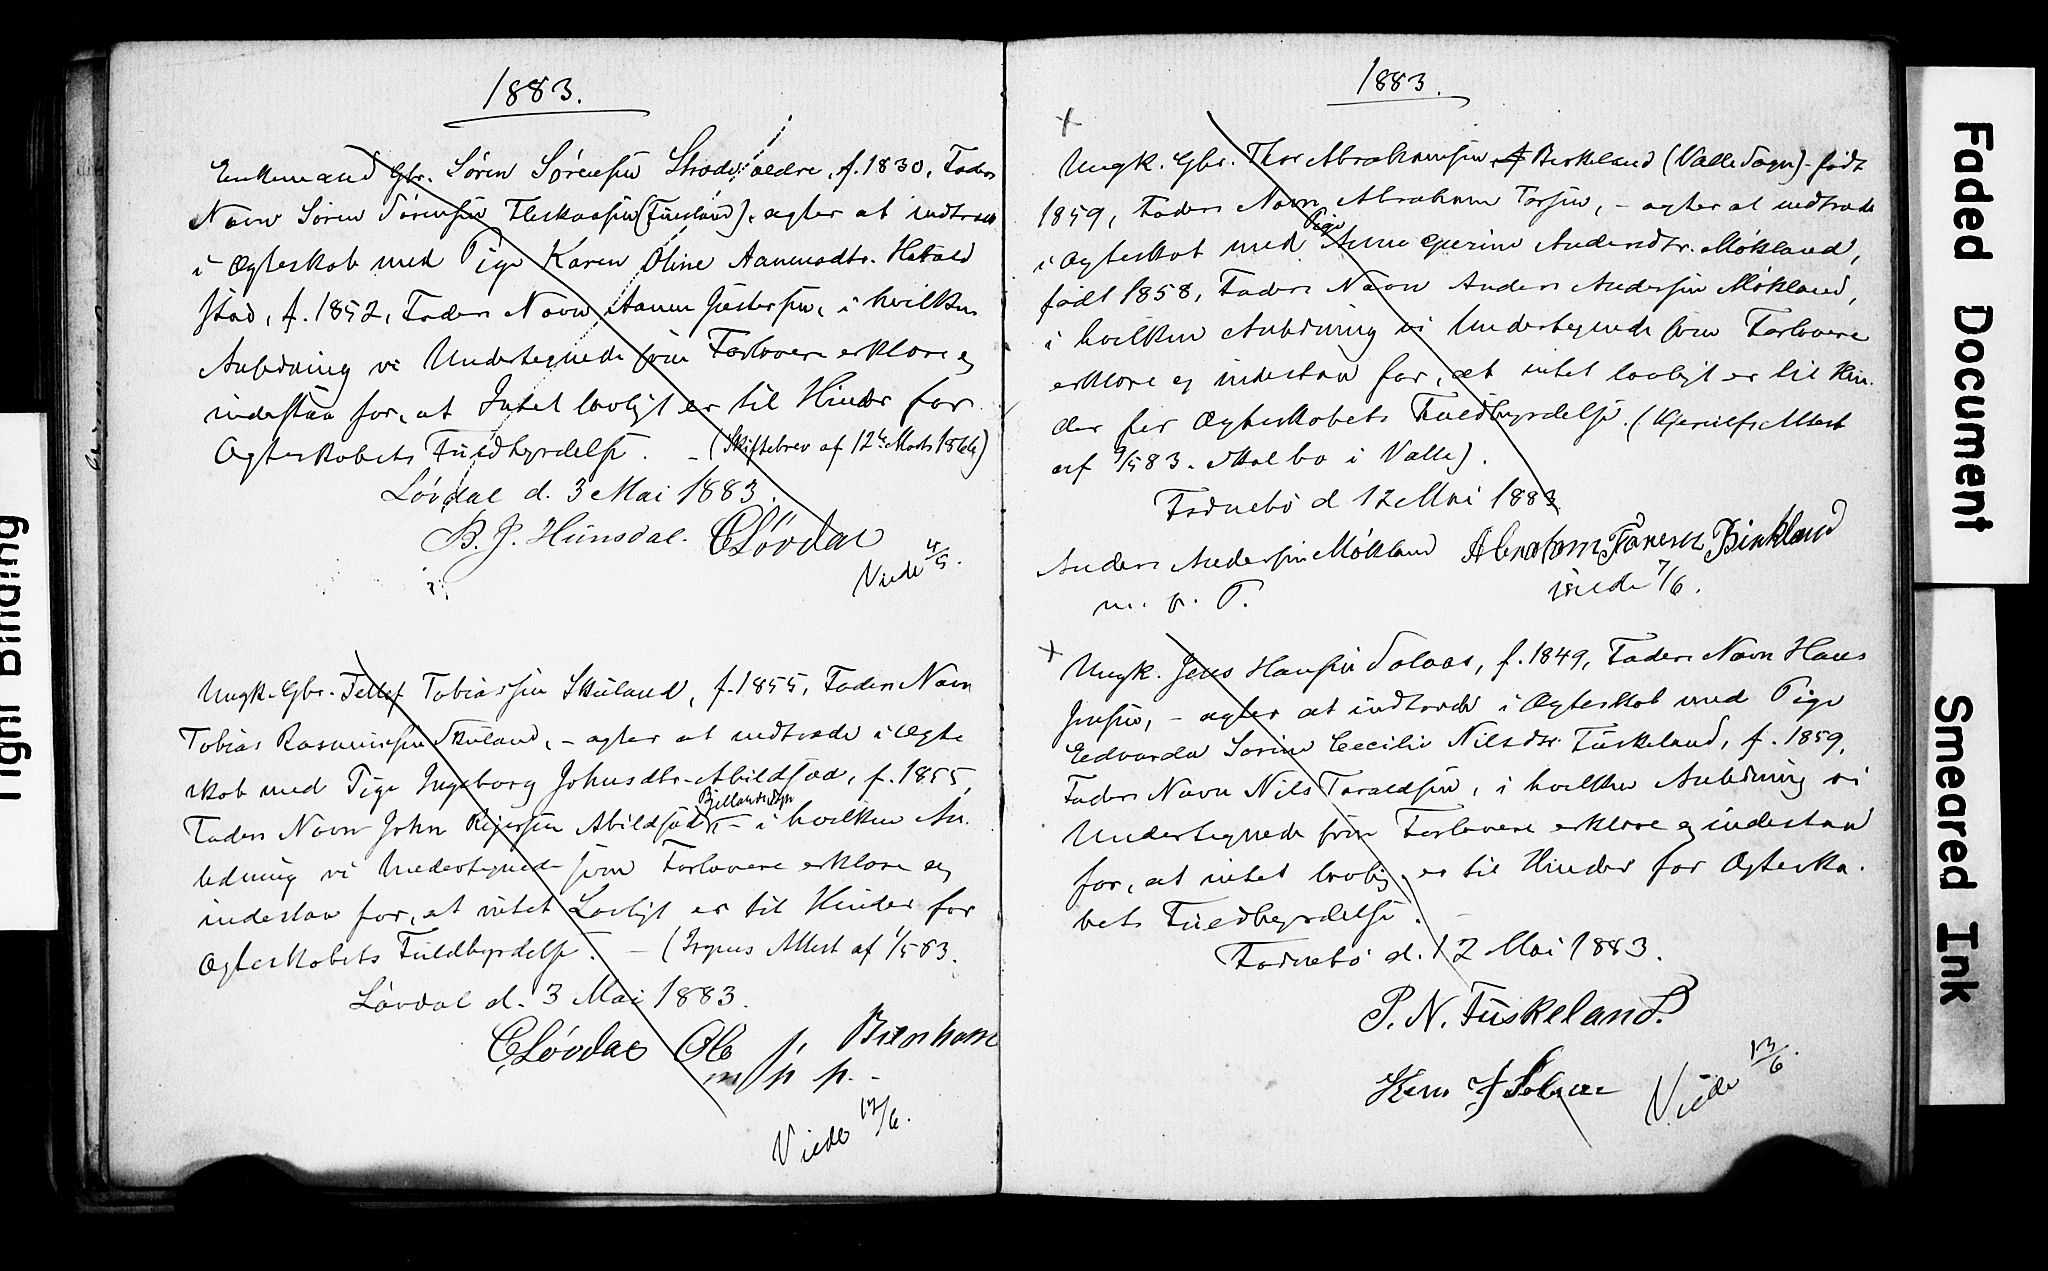 1883.
Enkemand Gbr. Søren Sørensen Strædet ældre, f. 1830, Faders
Navn Søren Sørensen Fleskaasen (Finsland), agter at indtræde
i Ægteskab med Pige Karen Oline Aanensdtr. Hebald
stad, f. 1852, Faders Navn Aanen Gjestersen, i hvilken
Anledning vi Undertegnede som Forlovere erklære og
indestaa for, at Intet lovligt er til Hinder for
Ægteskabets Fuldbyrdelse. – (Skiftebrev af 12te Marts 1866)
Løvdal d. 3 Mai 1883.
B. J. Hunsdal. C Løvdal
Viede 4/5.
Ungk. Gbr. Tellef Tobiassen Skuland, f. 1855, Faders Navn
Tobias Rasmussen Skuland, – agter at indtræde i Ægte
skab med Pige Ingeborg Johnsdtr. Abildstad, f. 1855,
Faders Navn John Reiersen Abildstad, Bjellands Sogn – i hvilken An.
ledning vi Undertegnede som Forlovere erklære og
indestaa for, at intet Lovligt er til Hinder for
Ægteskabets Fuldbyrdelse. – (Prgmes Attest af 1/5 83.
Løvdal d. 3 Mai 1883.
C Løvdal Ole J.
m p p. –
Viede 12/6.
1883.
+
Ungk. Gbr. Thor Abrahamsen Birkeland (Valle Sogn) født
1859, Faders Navn Abraham Torsen, – agter at indtræde
i Ægteskab med Pige Anne Gurine Andersdtr. Møkland,
født 1858, Faders Navn Anders Andersen Møkland,
i hvilken Anledning vi Undertegnede som Forlovere
erklære og indestaa for, at intet lovligt er til Hin.
der for Ægteskabets Fuldbyrdelse. (Attest
af 9/5 83. Skal bo i Valle).
Fodnebø d 12 Mai 1883
Anders Andersen Møkland Abraham Toresen Birkland
m. p. P.
viede 7/6.
+
Ungk. Jens Hansen Solaas, f. 1849, Faders Navn Hans
Jensen, – agter at indtræde i Ægteskab med Pige
Edvarda Sorine Cecilie Nilsdtr. Fuskeland, f. 1859,
Faders Navn Nils Taraldsen, i hvilken Anledning vi
Undertegnede som Forlovere erklære og indestaa
for, at intet lovlig er til Hinder for Ægteska.
bets Fuldbyrdelse. –
Fodnebø d. 12 Mai 1883.
P. N. Fuskeland.
Viede 13/6.
Tight Binding
Faded Document
Smeared Ink